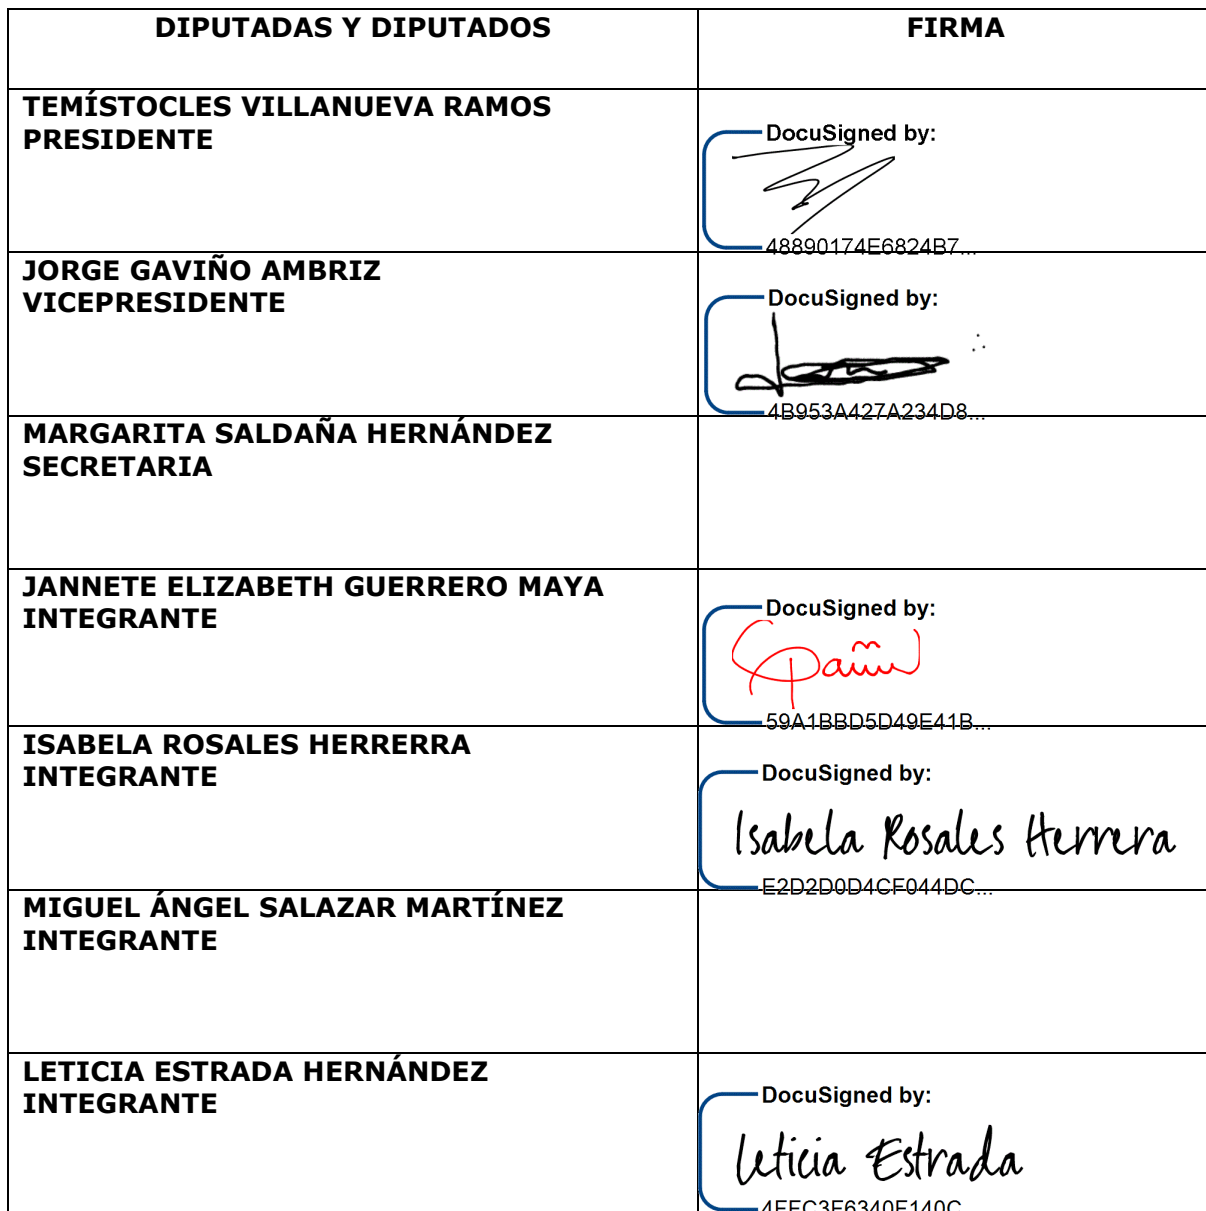 DIPUTADAS Y DIPUTADOS
FIRMA
TEMÍSTOCLES VILLANUEVA RAMOS
PRESIDENTE
DocuSigned by:
48890174E6824B7...
JORGE GAVIÑO AMBRIZ
VICEPRESIDENTE
DocuSigned by:
4B953A427A234D8...
MARGARITA SALDAÑA HERNÁNDEZ
SECRETARIA
JANNETE ELIZABETH GUERRERO MAYA
INTEGRANTE
DocuSigned by:
59A1BBD5D49E41B...
ISABELA ROSALES HERRERRA
INTEGRANTE
DocuSigned by:
Isabela Rosales Herrera
E2D2D0D4CF044DC...
MIGUEL ÁNGEL SALAZAR MARTÍNEZ
INTEGRANTE
LETICIA ESTRADA HERNÁNDEZ
INTEGRANTE
DocuSigned by:
Leticia Estrada